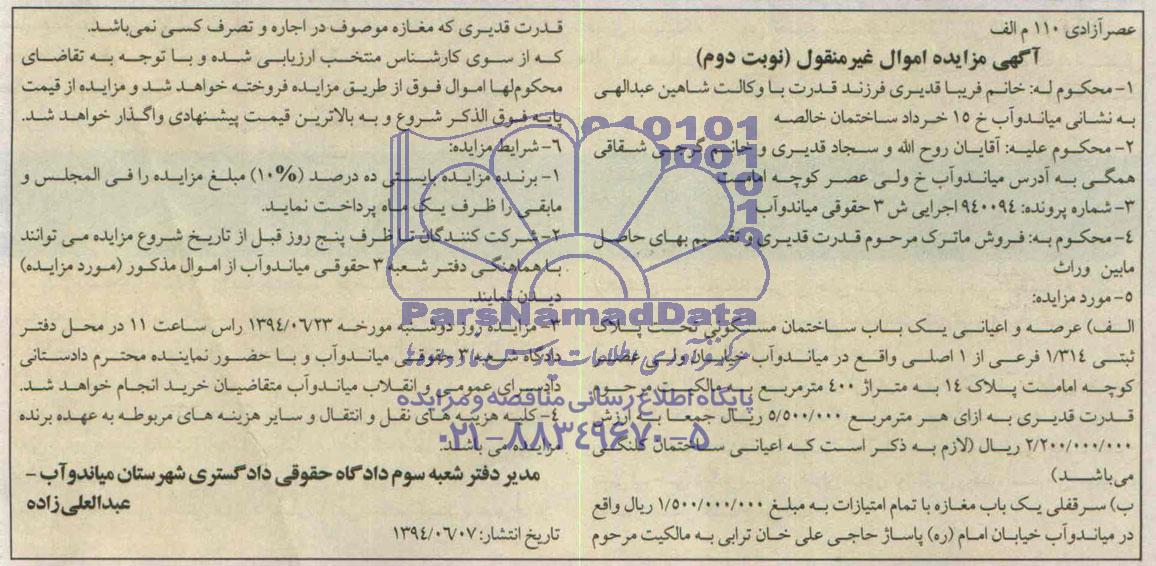 عصرآزادی ۱۱۰ م الف
آگهی مزایده اموال غیرمنقول (نوبت دوم)
۱- محکوم له: خانم فریبا قدیری فرزند قدرت با وکالت شاهین عبدالهی
به نشانی میاندوآب خ ۱۵ خرداد ساختمان خالصه
۲- محکوم علیه: آقایان روح الله و سجاد قدیری و خانم گرجی شقاقی
همگی به آدرس میاندوآب خ ولی عصر کوچه امامت
۳- شماره پرونده: ۹۴۰۰۹۴ اجرایی ش ۳ حقوقی میاندوآب
۴- محکوم به: فروش ماترک مرحوم قدرت قدیری و تقسیم بهای حاصل
مابین وراث
۵- مورد مزایده:
الف) عرصه و اعیانی یک باب ساختمان مسکونی تحت پلاک
ثبتی ۱/۳۱۴ فرعی از ۱ اصلی واقع در میاندوآب خیابان ولی عصر
کوچه امامت پلاک ۱۴ به متراژ ۴۰۰ مترمربع به مالکیت مرحوم
قدرت قدیری به ازای هر مترمربع ۵/۵۰۰/۰۰۰ ریال جمعا به ارزش
۲/۲۰۰/۰۰۰/۰۰۰ ریال (لازم به ذکر است که اعیانی ساختمان کلنگی
می‌باشد)
ب) سرقفلی یک باب مغازه با تمام امتیازات به مبلغ ۱/۵۰۰/۰۰۰/۰۰۰ ریال واقع
در میاندوآب خیابان امام (ره) پاساژ حاجی علی خان ترابی به مالکیت مرحوم
قدرت قدیری که مغازه موصوف در اجاره و تصرف کسی نمی‌باشد.
که از سوی کارشناس منتخب ارزیابی شده و با توجه به تقاضای
محکوم‌لها اموال فوق از طریق مزایده فروخته خواهد شد و مزایده از قیمت
پایه فوق الذکر شروع و به بالاترین قیمت پیشنهادی واگذار خواهد شد.
۶- شرایط مزایده:
۱- برنده مزایده بایستی ده درصد (۱۰%) مبلغ مزایده را فی المجلس و
مابقی را ظرف یک ماه پرداخت نماید.
۲- شرکت کنندگان تا ظرف پنج روز قبل از تاریخ شروع مزایده می توانند
با هماهنگی دفتر شعبه ۳ حقوقی میاندوآب از اموال مذکور (مورد مزایده)
دیدن نمایند.
۳- مزایده روز دوشنبه مورخه ۱۳۹۴/۰۶/۲۳ راس ساعت ۱۱ در محل دفتر
دادگاه شعبه ۳ حقوقی میاندوآب و با حضور نماینده محترم دادستانی
دادسرای عمومی و انقلاب میاندوآب متقاضیان خرید انجام خواهد شد.
۴- کلیه هزینه های نقل و انتقال و سایر هزینه های مربوطه به عهده برنده
مزایده می باشد.
مدیر دفتر شعبه سوم دادگاه حقوقی دادگستری شهرستان میاندوآب -
عبدالعلی زاده
تاریخ انتشار: ۱۳۹۴/۰۶/۰۷
ParsNamadData
پایگاه اطلاع رسانی مناقصه و مزایده
۰۲۱-۸۸۳۴۹۶۷۰-۵